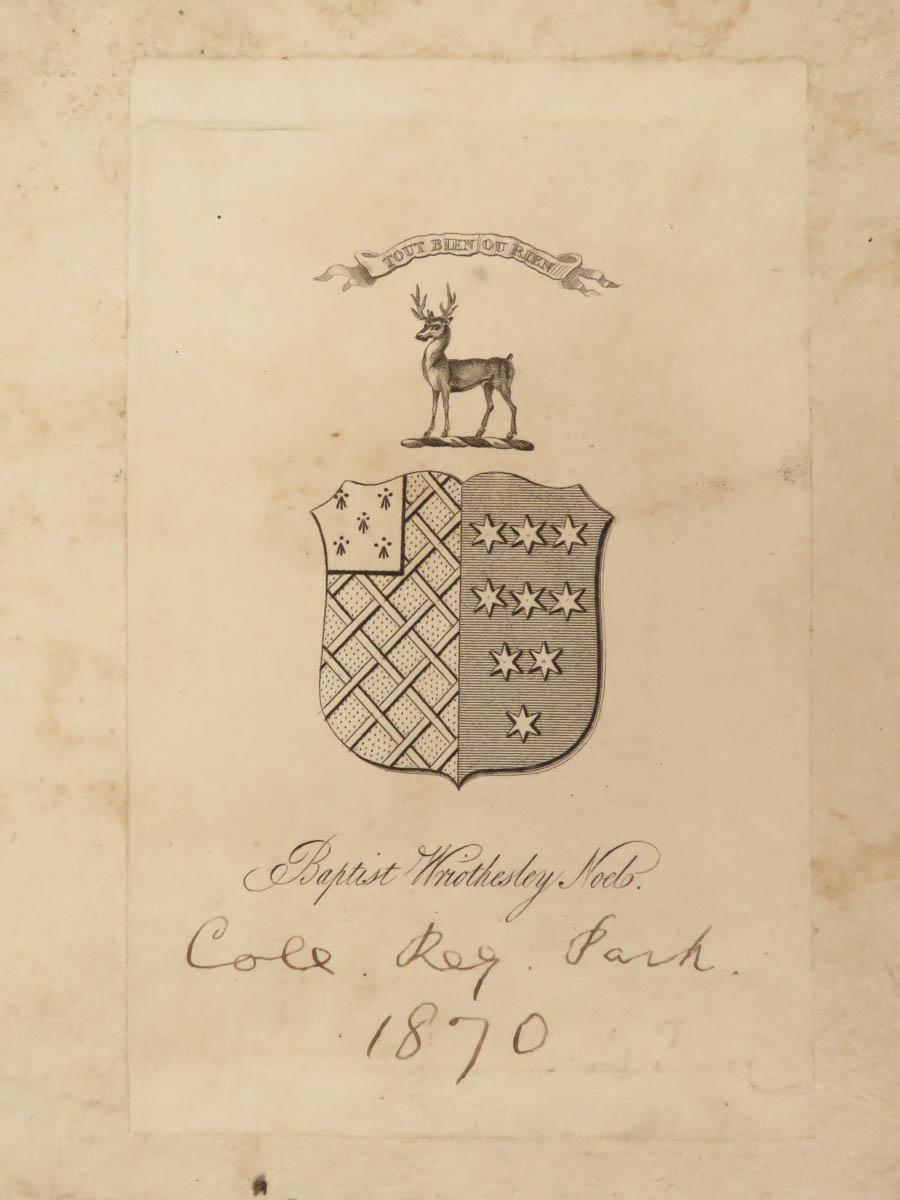 TOUT BIEN OU RIEN
Baptist Wriothesley Noel.
Cole. Reg. Park.
1870